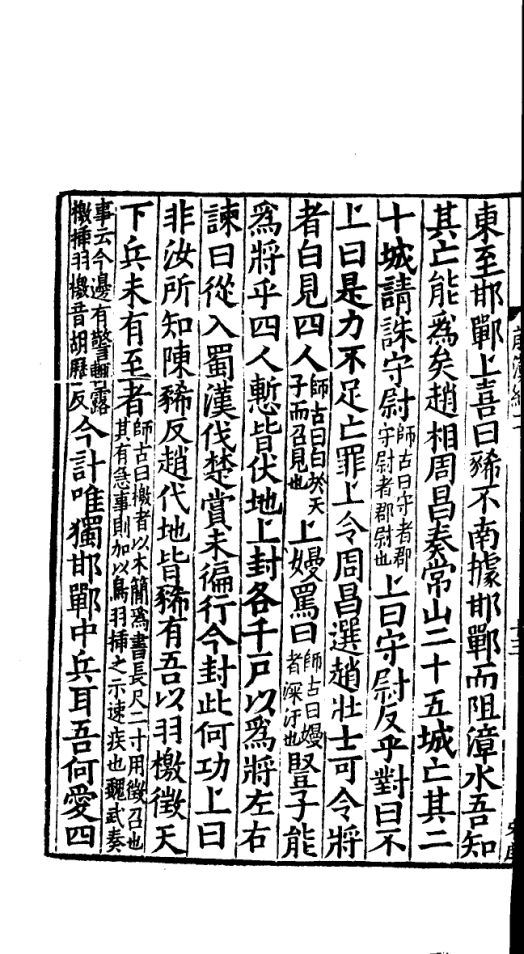 東至邯鄲上喜曰豨不南據邯鄲而阻漳水吾知
其亡能爲矣趙相周昌奏常山二十五城亡其二
十城請誅守尉師古曰守者郡守尉者郡尉也上曰守尉反乎對曰不
上曰是力不足亡罪上令周昌選趙壯士可令將
者白見四人師古曰白於天子而召見也上嫚罵曰師古曰嫚者渫汙也豎子能
爲將乎四人慙皆伏地上封各千戶以爲將左右
諫曰從入蜀漢伐楚賞未徧行今封此何功上曰
非汝所知陳豨反趙代地皆豨有吾以羽檄徵天
下兵未有至者師古曰檄者以木簡爲書長尺二寸用徵召也其有急事則加以鳥羽插之示速疾也魏武奏
事云今邊有警輒露檄插羽檄音胡歷反今計唯獨邯鄲中兵耳吾何愛四